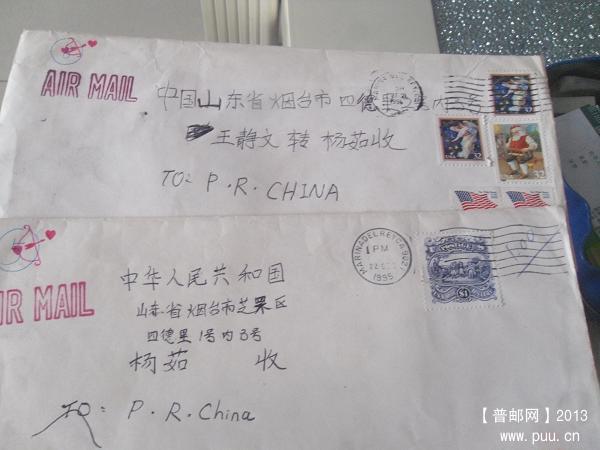 AIR MAIL
中国山东省烟台市四德里
王静文转 杨茹收
TO: P.R. CHINA
32
32
32
AIR MAIL
MARINA DEL REY CA 902
1 PM
1995
$1
中华人民共和国
山东省烟台市芝罘区
四德里1号内3号
杨茹 收
TO: P.R. China
【普邮网】2013
www.puu.cn